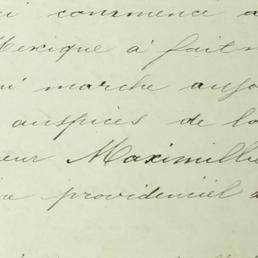 ui commence a
Mexique a fait
ui marche aujo
auspices de la
eur Maximilli
providenciel